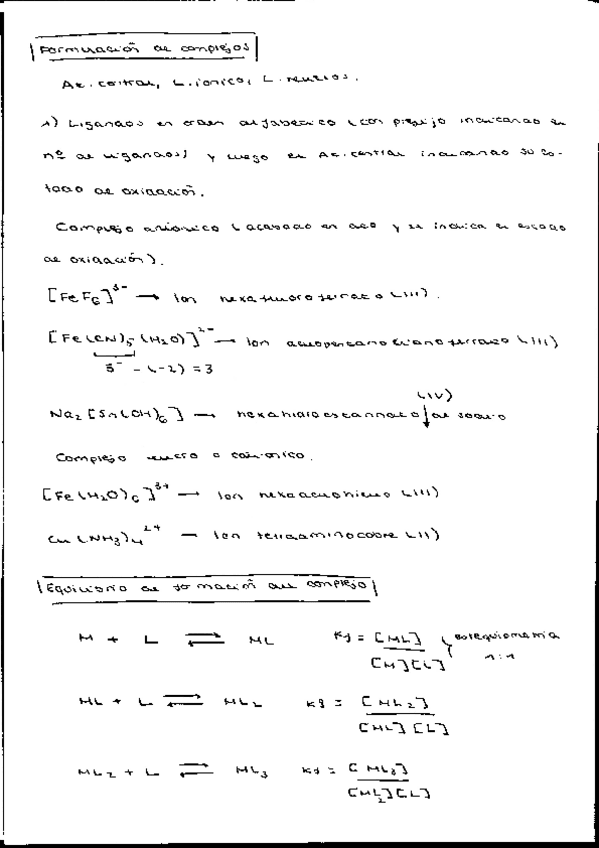 Formulación de complejos
At. central, L. iónico, L. neutros.
1) Ligandos en orden alfabético (con prefijo indicando el
nº de ligandos) y luego el At. central indicando su es-
tado de oxidación.
Complejo aniónico (acabado en ato y se indica el estado
de oxidación).
[FeF6]3- → Ion hexafluoroferrato (III).
[Fe(CN)5(H2O)]2- → Ion acuopentanocianoferrato (III)
5- - (-2) = 3
(IV)
Na2[Sn(OH)6] → hexahidroestannato ↓ de sodio
Complejo neutro o catiónico.
[Fe(H2O)6]3+ → Ion hexaacuohierro (III)
Cu(NH3)4 2+ → Ion tetraaminocobre (II)
Equilibrio de formación del complejo
M + L ⇌ ML Kf = [ML] / [M][L] estequiometría 1:1
ML + L ⇌ ML2 Kf = [ML2] / [ML][L]
ML2 + L ⇌ ML3 Kf = [ML3] / [ML2][L]